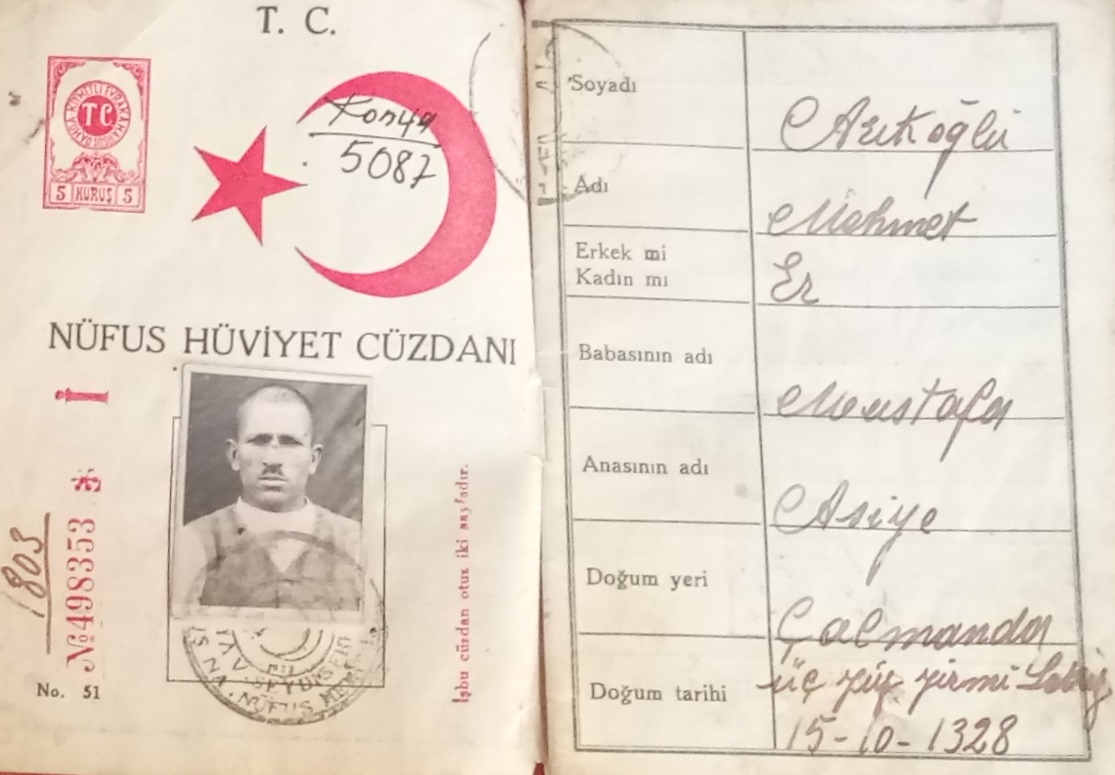 T. C.
T C
5 KURUŞ 5
Konya
5087
NÜFUS HÜVİYET CÜZDANI
İ
№ 498353 *
1803
No. 51
İşbu cüzdan otuz iki sayfadır.
SEYDİŞEHİR
NÜFUS
Soyadı
Adı
Mehmet
Erkek mi
Kadın mı
Er
Babasının adı
Mustafa
Anasının adı
Asiye
Doğum yeri
Çalmanda
Doğum tarihi
üç yüz yirmi
15-10-1328